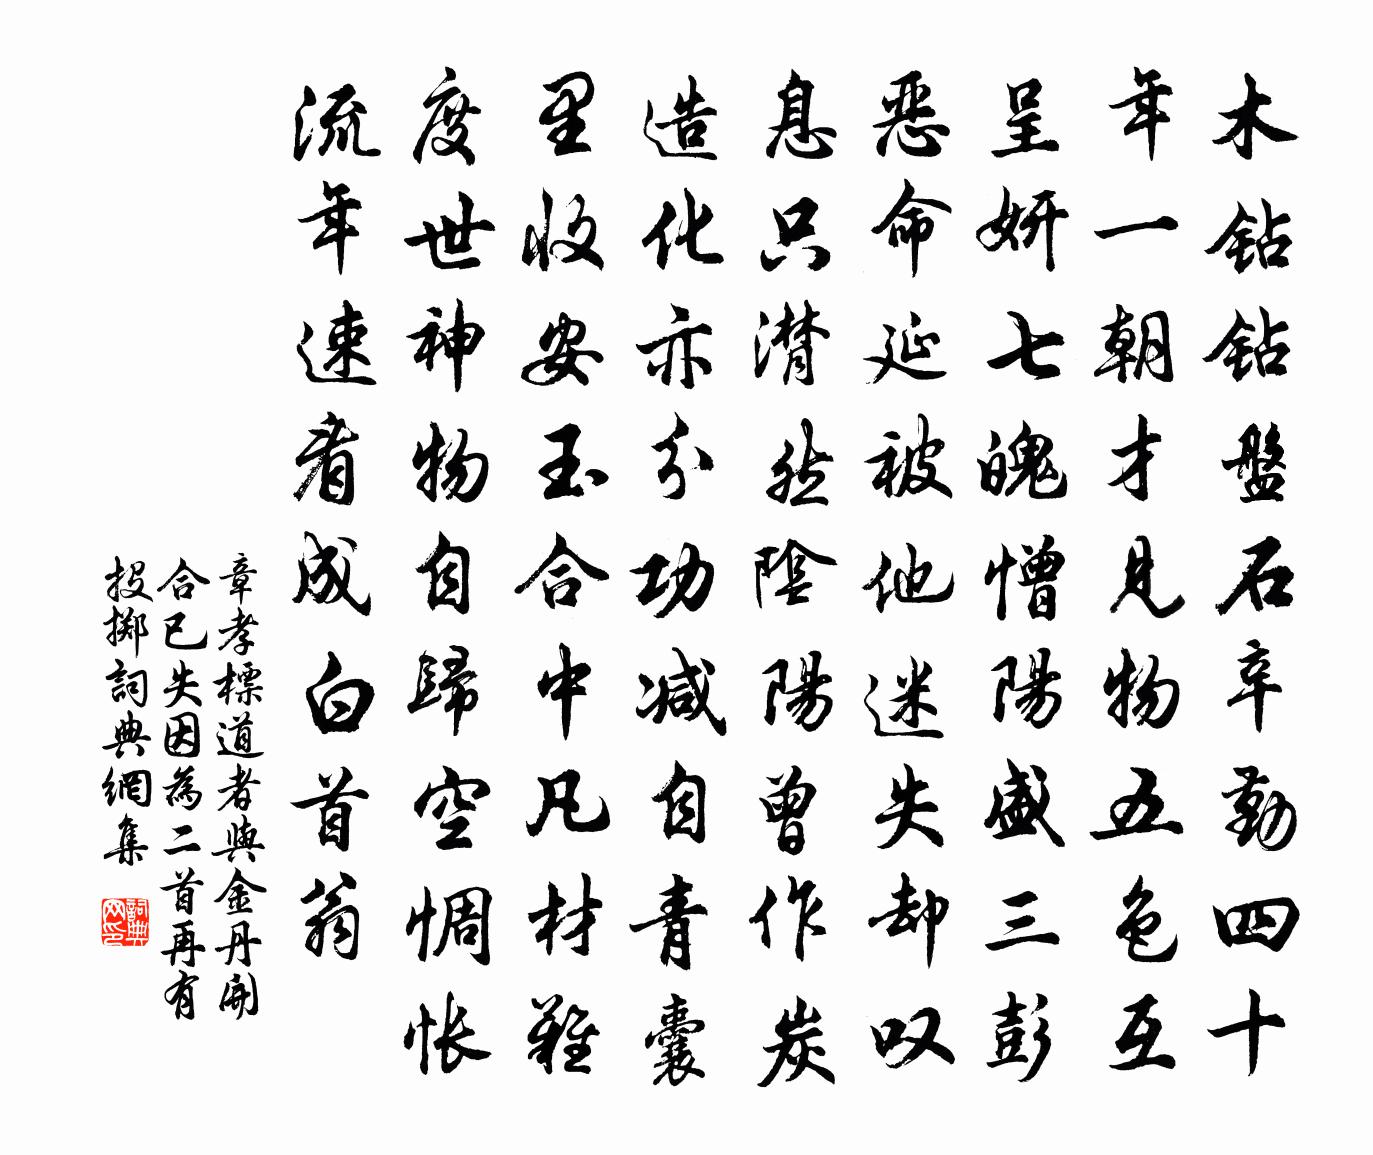 木钻钻盤石辛勤四十
年一朝才見物五色互
呈妍七魄憎陽盛三彭
恶命延被他迷失却叹
息只潸然陰陽曾作炭
造化亦分功减自青囊
里收安玉合中凡材難
度世神物自歸空惆怅
流年速看成白首翁
章孝標道者與金丹開
合已失因為二首再有
投掷詞典網集
詞典
网印